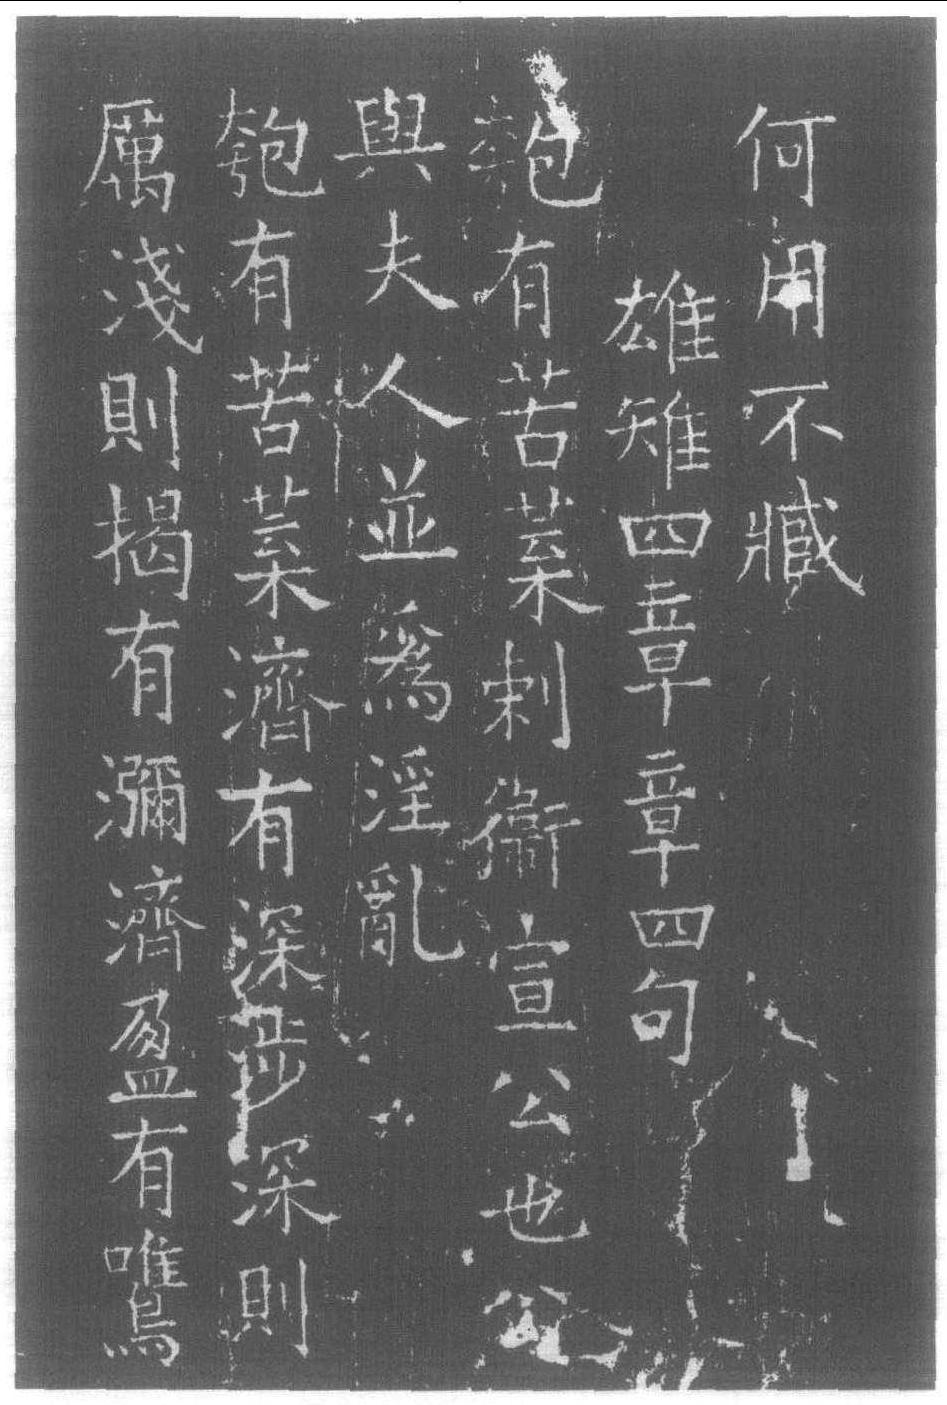 何用不臧
雄雉四章章四句
匏有苦菜刺衛宣公也公
與夫人並為淫亂
匏有苦菜濟有深涉深則
厲淺則揭有瀰濟盈有鷕